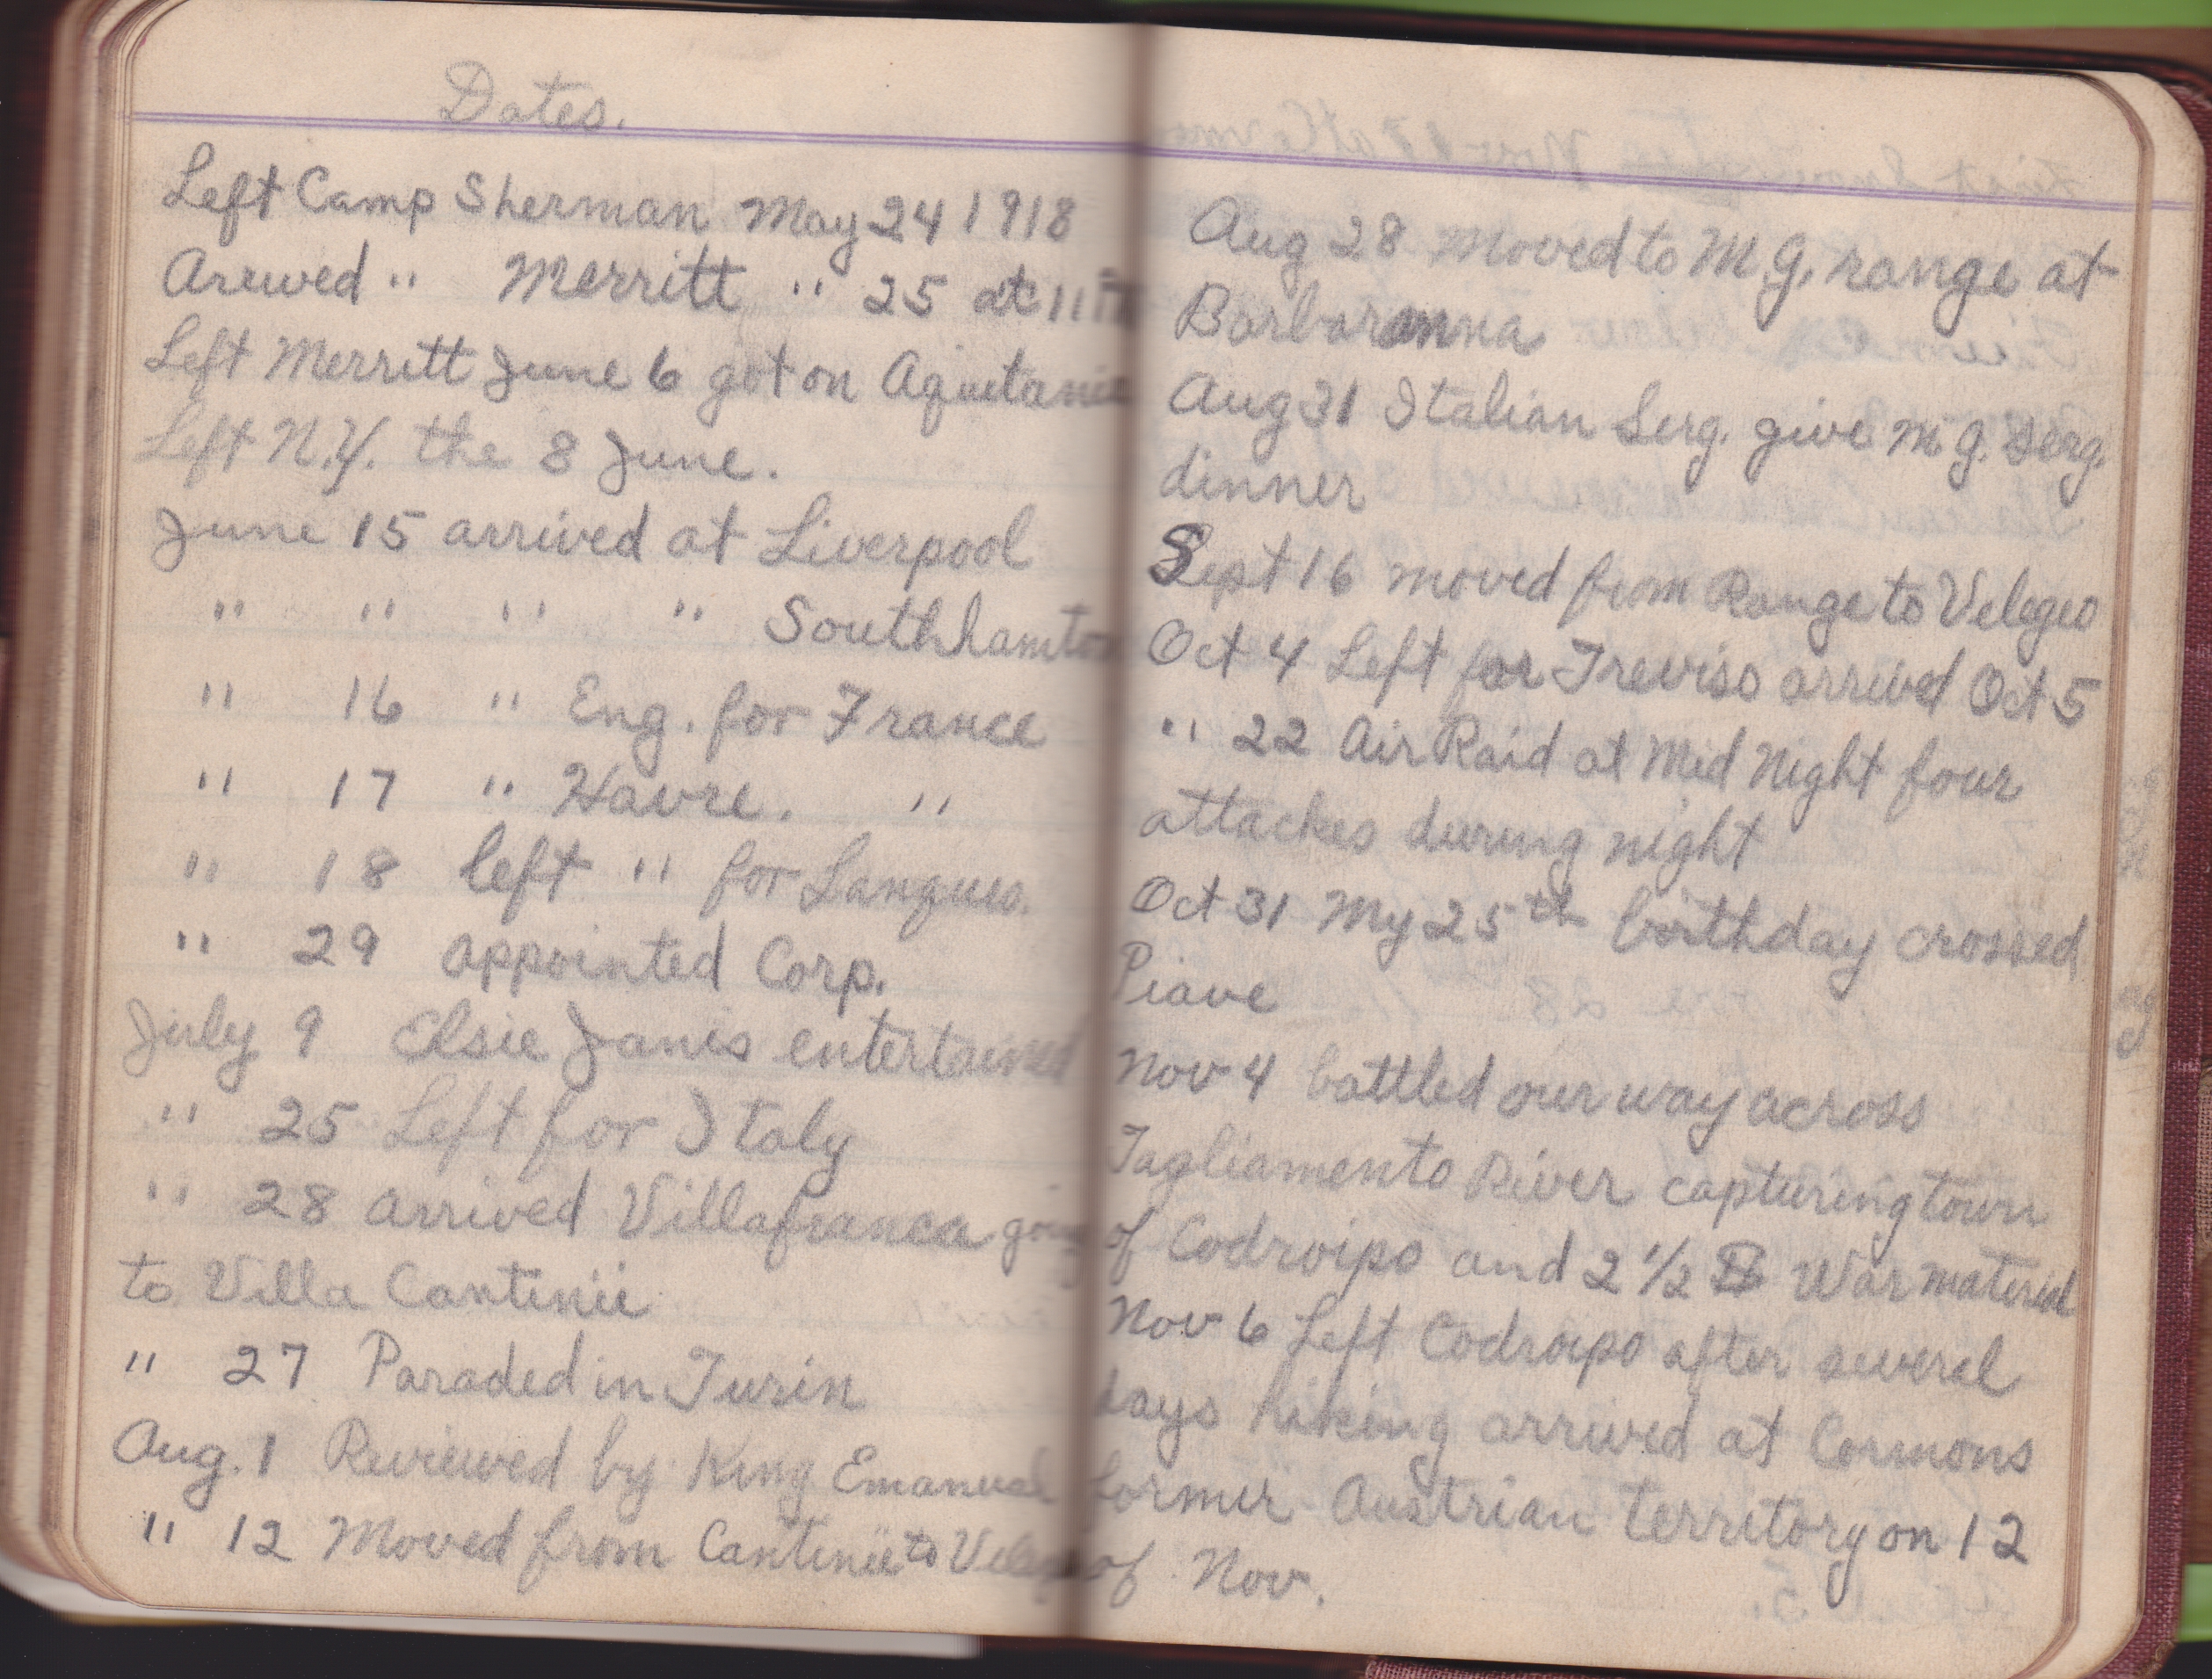 Dates.
Left Camp Sherman May 24 1918
Arewed " Merritt " 25 at 11
Left Merritt June 6 got on Aquetania
Left N.Y. the 8 June.
June 15 arrived at Liverpool
" " " " Southhamton
" 16 " Eng. for France
" 17 " Havre. "
" 18 left " for Langues.
" 29 appointed Corp.
July 9 Elsie Janis entertained
" 25 Left for Italy
" 28 arrived Villafranca going
to Villa Cantinii
" 27 Paraded in Turin
Aug. 1 Reviewed by King Emanuel
" 12 Moved from Cantinii to
Aug 28 moved to M.G. range at
Barbaranna
Aug 31 Italian Serg. give M.G. Serg.
dinner
Sept 16 moved from Range to Velegeo
Oct 4 Left for Treviso arrived Oct 5
" 22 Air Raid at Mid Night four
attackes during night
Oct 31 My 25th birthday crossed
Piave
Nov 4 battled our way across
Tagliamento River capturing town
of Codroipo and 2 1/2 B War matereal
Nov 6 Left Codroipo after several
days hiking arrived at Cormons
former Austrian territory on 12
of Nov.